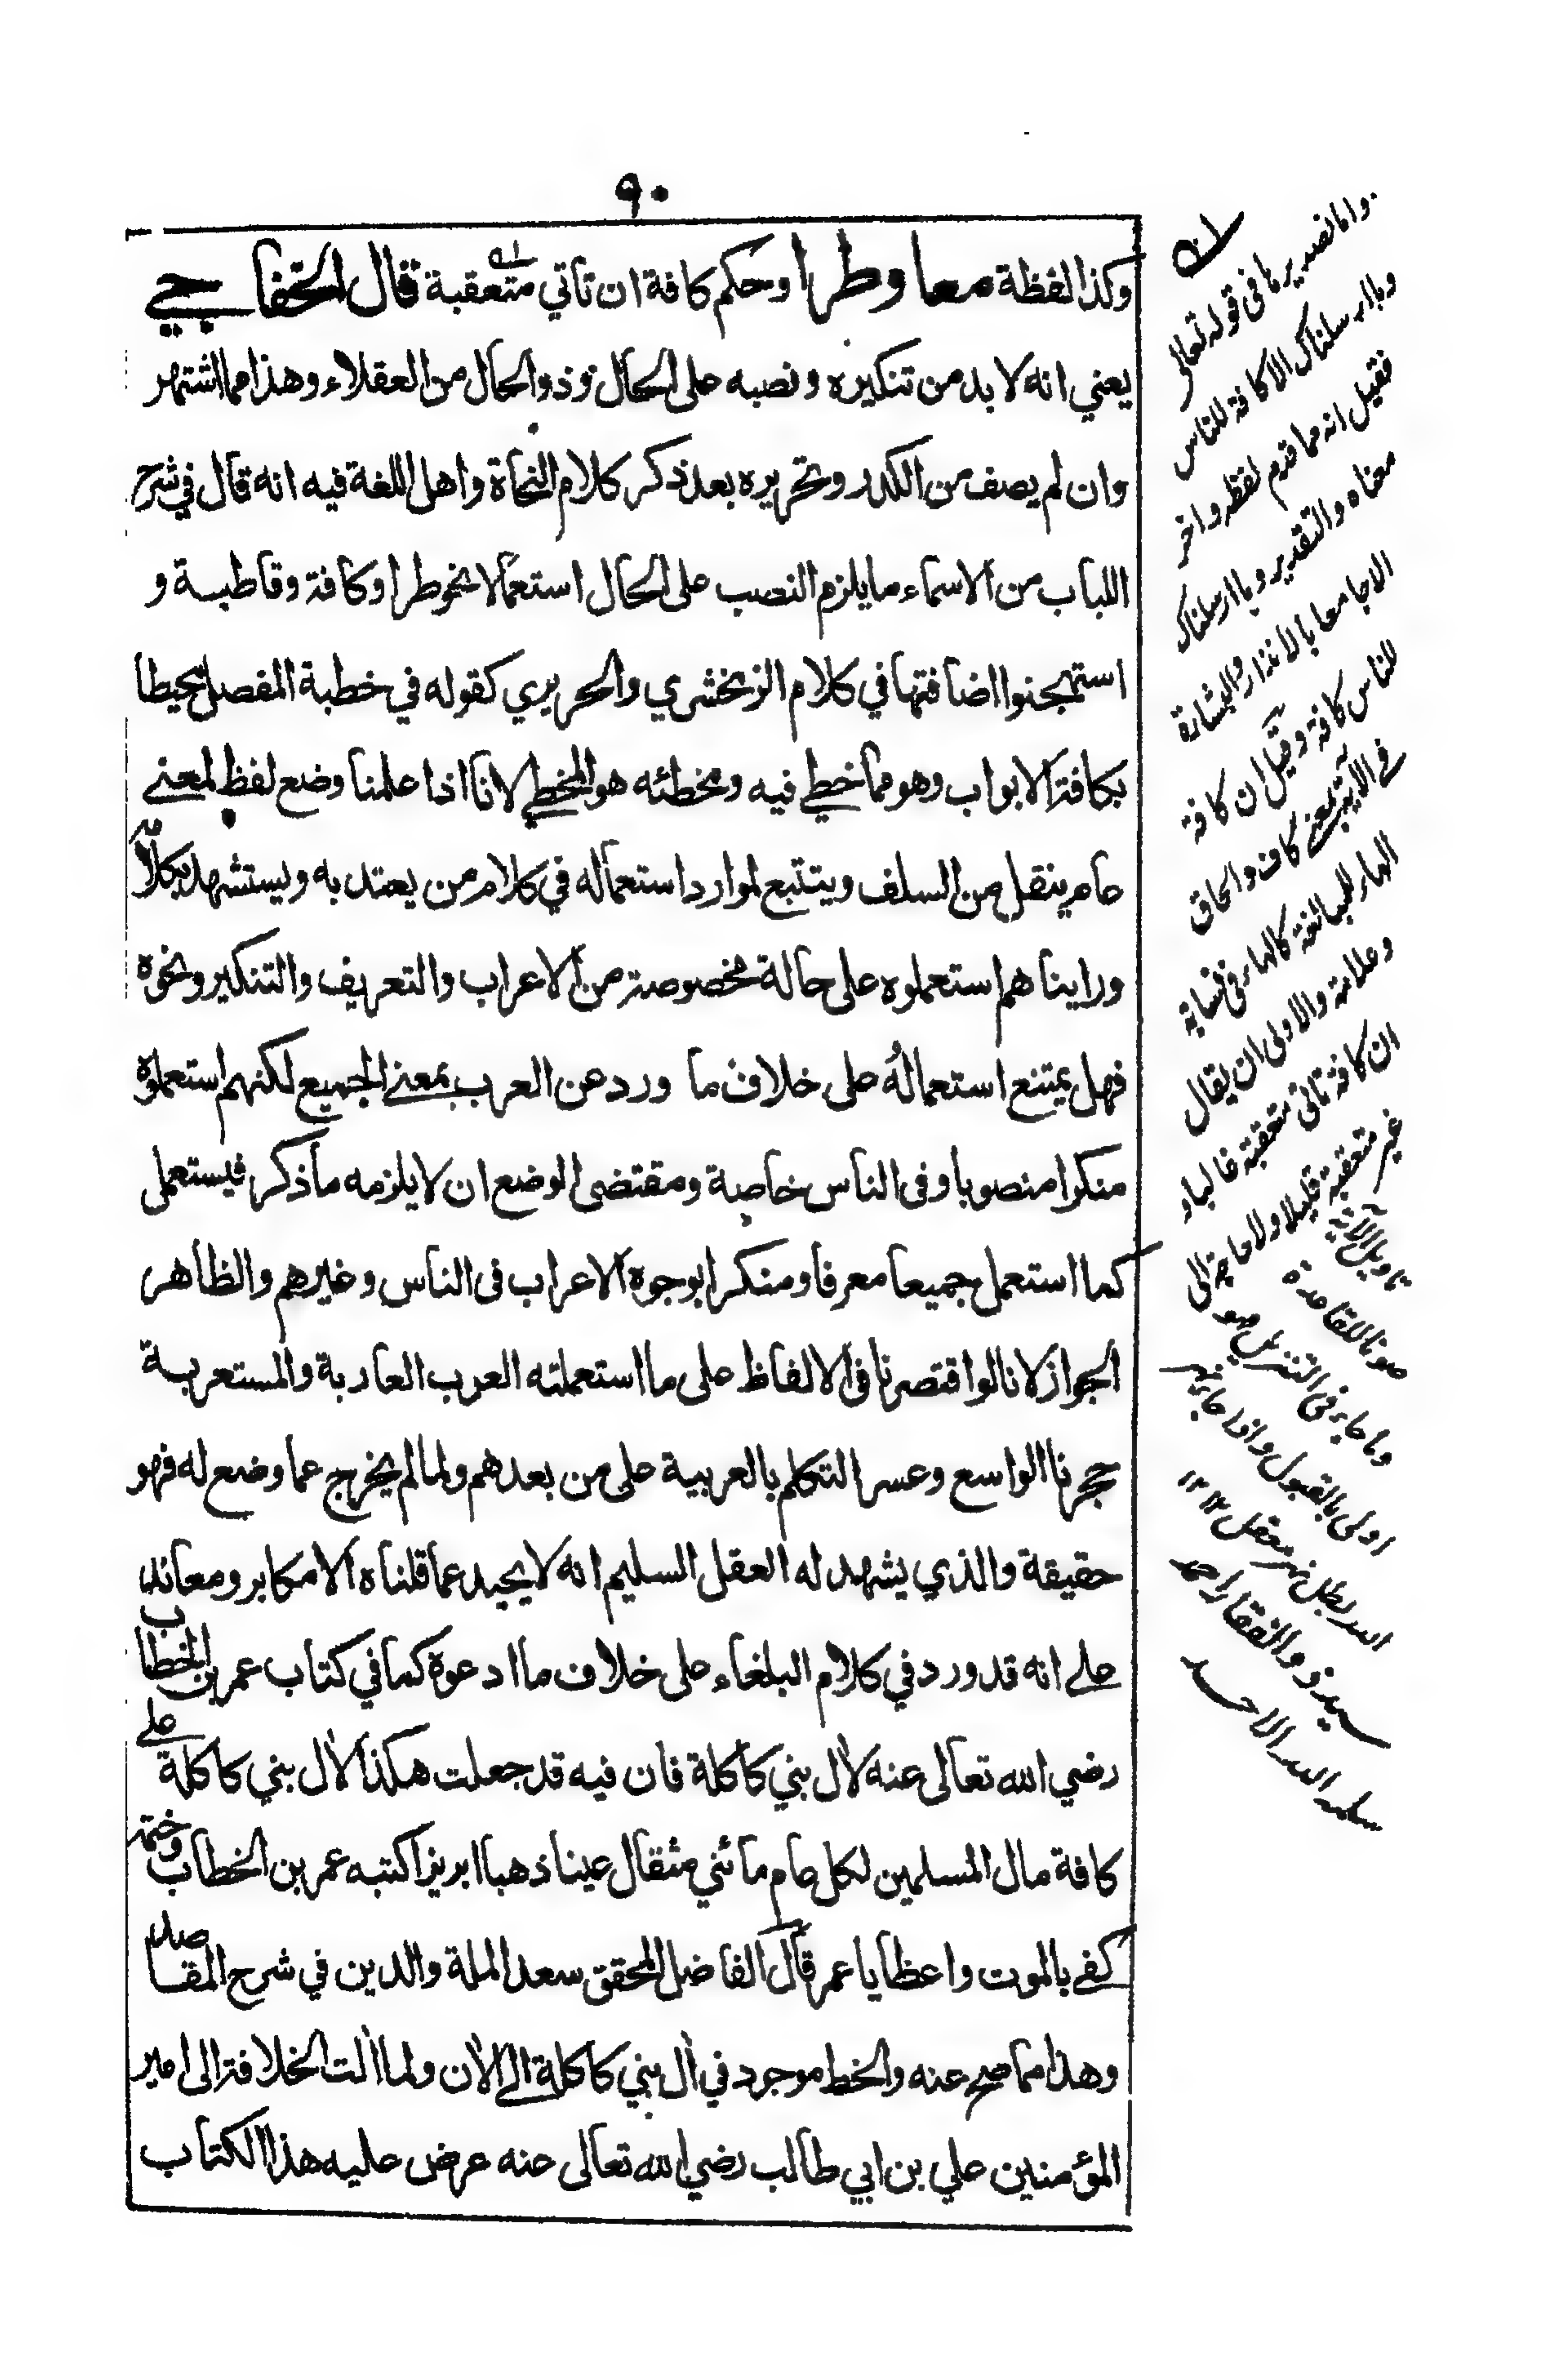 ٩٠
وكذا لفظة معا وطرا وحكم كافة ان تاتي متعقبة قال الخفاجي
يعني انه لا بد من تنكيره ونصبه على الحال وذو الحال من العقلاء وهذا مما اشتهر
وان لم يصف من الكدر وتحريره بعد ذكر كلام النحاة واهل اللغة فيه انه قال في شرح
اللباب من الاسماء ما يلزم النصب على الحال استعمالا نحو طرا وكافة وقاطبة و
استهجنوا اضافتها في كلام الزمخشري والحريري كقوله في خطبة المفصل محيطا
بكافة الابواب وهو مما خطي فيه ومخطئه هو المخطي لانا اذا علمنا وضع لفظ لمعنى
عام ينقل من السلف ويتتبع لموارد استعماله في كلام من يعتد به ويستشهد بكلامه
وراينا هم استعملوه على حالة مخصوصة من الاعراب والتعريف والتنكير ونحوه
فهل يمتنع استعماله على خلاف ما ورد عن العرب بمعنى الجميع لكنهم استعملوه
منكرا منصوبا وفى الناس خاصة ومقتضى الوضع ان لا يلزمه ما ذكر فيستعمل
كما استعمل جميعا معرفا ومنكرا بوجوه الاعراب فى الناس وغيرهم والظاهر
الجواز لانا لو اقتصرنا فى الالفاظ على ما استعملته العرب العاربة والمستعربة
حجرنا الواسع وعسر التكلم بالعربية على من بعدهم ولما لم يخرج عما وضع له فهو
حقيقة والذي يشهد له العقل السليم انه لا يحيد عما قلناه الا مكابر ومعاند
على انه قد ورد في كلام البلغاء على خلاف ما ادعوه كما في كتاب عمر بن الخطاب
رضي الله تعالى عنه لال بني كاكلة فان فيه قد جعلت هكذا لال بني كاكلة على
كافة مال المسلمين لكل عام مائتي مثقال عينا ذهبا ابريزا كتبه عمر بن الخطاب وختمه
كفى بالموت واعظا يا عمر قال الفاضل المحقق سعد الملة والدين في شرح المقاصد
وهذا مما صح عنه والخط موجود في ال بني كاكلة الى الان ولما الت الخلافة الى امير
المؤمنين علي بن ابي طالب رضي الله تعالى عنه عرض عليه هذا الكتاب
واما تصديرها فى قوله تعالى
وما ارسلناك الا كافة للناس
فقيل انه مما قدم لفظه واخر
معناه والتقدير وما ارسلناك
الا جامعا بالانذار والبشارة
للناس كافة وقيل ان كافة
في الآية بمعنى كاف والحاق
الهاء للمبالغة كالهاء فى نسابة
وعلامة والاولى ان يقال
ان كافة تاتى متعقبة غالبا و
غير متعقبة قليلا ولا حاجة الى
تاويل الآية
صونا للقاعدة
وما جاء فى التنزيل هو
اولى بالقبول واذا جاء نهر
الله بطل نهر معقل ١٢
سيد ذو الفقار احمد
سلمه الله الاحد